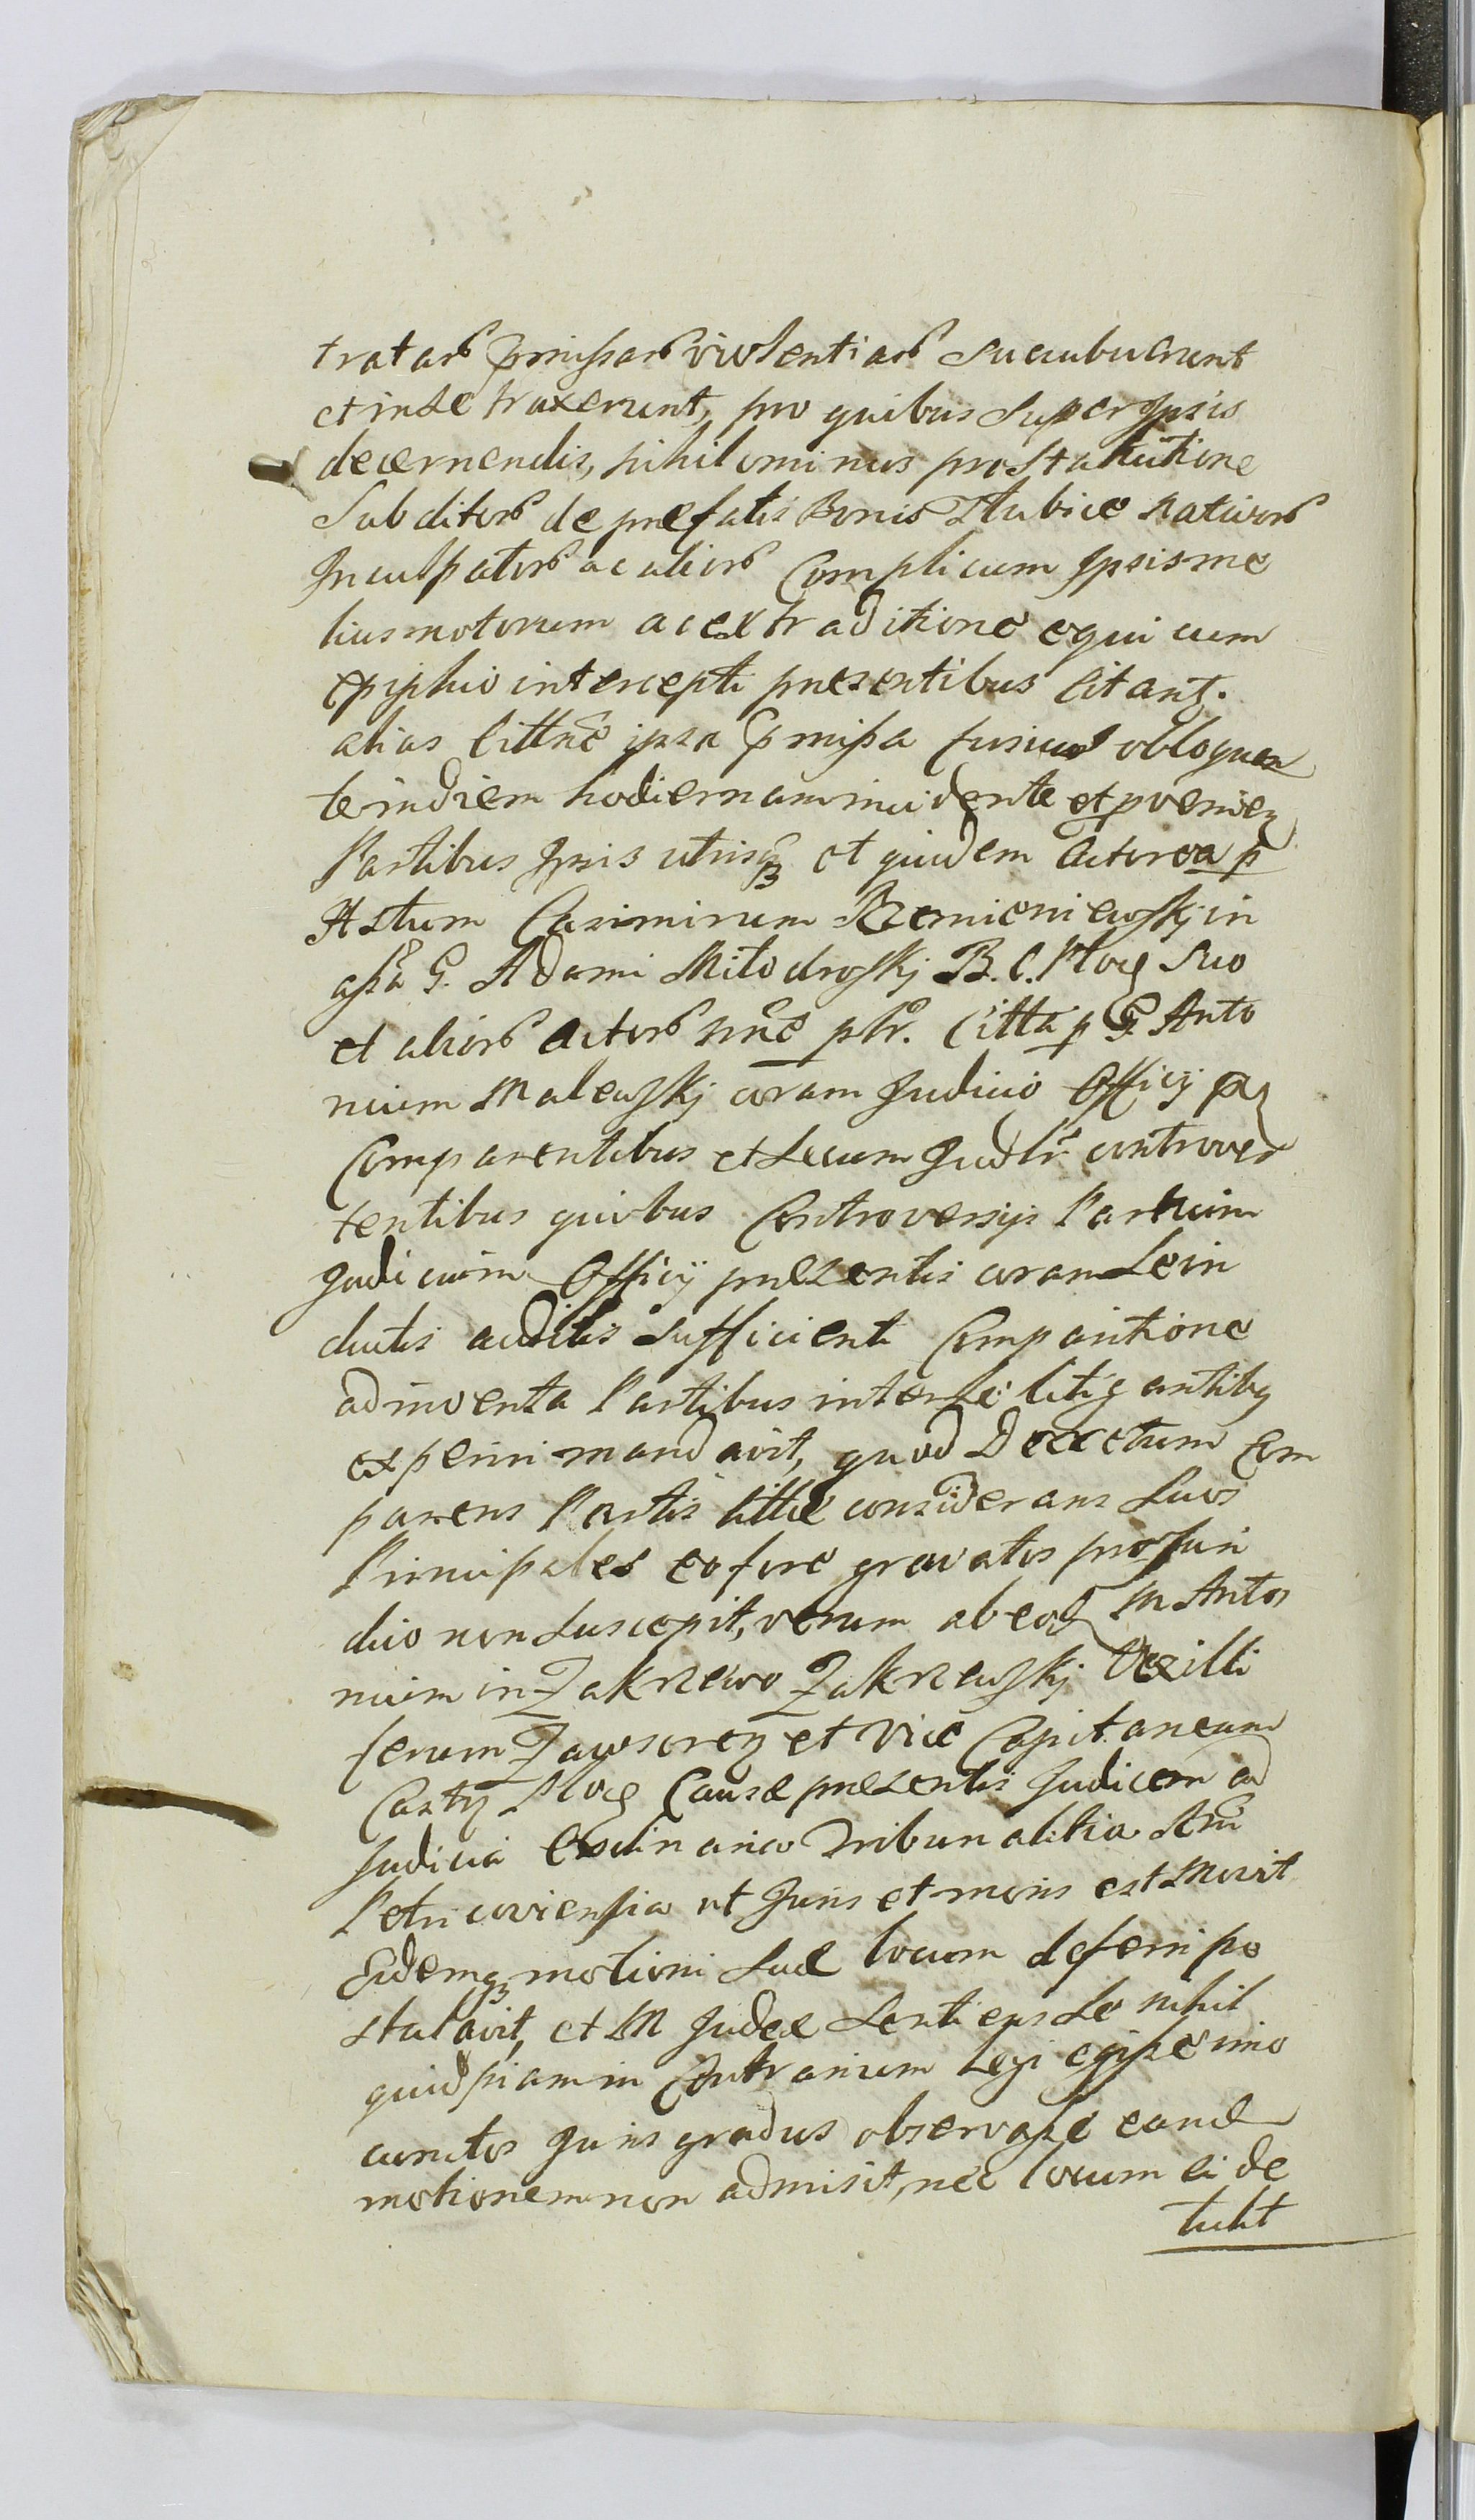 tratarũ pmissarũ violentiarũ sucubuerunt
et in se traxerunt, pro quibus super ipsis
decernendis, nihilominus pro statuitione
Subditorũ de prefatis Bonis Stubice nativorũ
Inculpatorũ ac aliorũ Complicum Ipsis me
lius notorum ac extraditione equi cum
epiphio intercepti presentibus citant.
alias cittnẽ ipsa pmissa fusius obloquen
te in diem hodiernam incidente et pvenien
Partibus Ipsis utrisqȝ et quidem Actorea p
Astum Casimirum Rzemieniewskj in
assã G. Adami Mitodroskj B. C. Ploc suo
et aliorũ Actorũ nnẽ pltr. Citta p G. Anto
nium Malewskj coram Judicio Officij pn
Comparentibus et secum Judltr controver
tentibus quibus Controversijs Partium
Judicium Officij presentis coram se in
ductis auditis sufficienti Comparitione
adinventa Partibus inter se litigantibus
experiri mandavit, quod Decretum Com
parens Partis cittae considerans suos
Principales eo fore gravatos pro Juri
dico non suscepit, verum ab eod M Anto
nium in Zakrzewo Zakrzewskj Vexilli
ferum Zawscren et Vice Capitaneum
Castren Ploc Causae presentis Judicem ad
Judicia Ordinario Tribunalitia Rni
Petricoviensia ut Juris et moris est Movit
Eidemqȝ motioni suae locum deferri po
stulavit, et M Judex sentiens se nihil
quidpiam in Contrarium Legi egisse imo
cunctos Juris gradus observasse eand
motionem non admisit, nec locum ei de
tulit